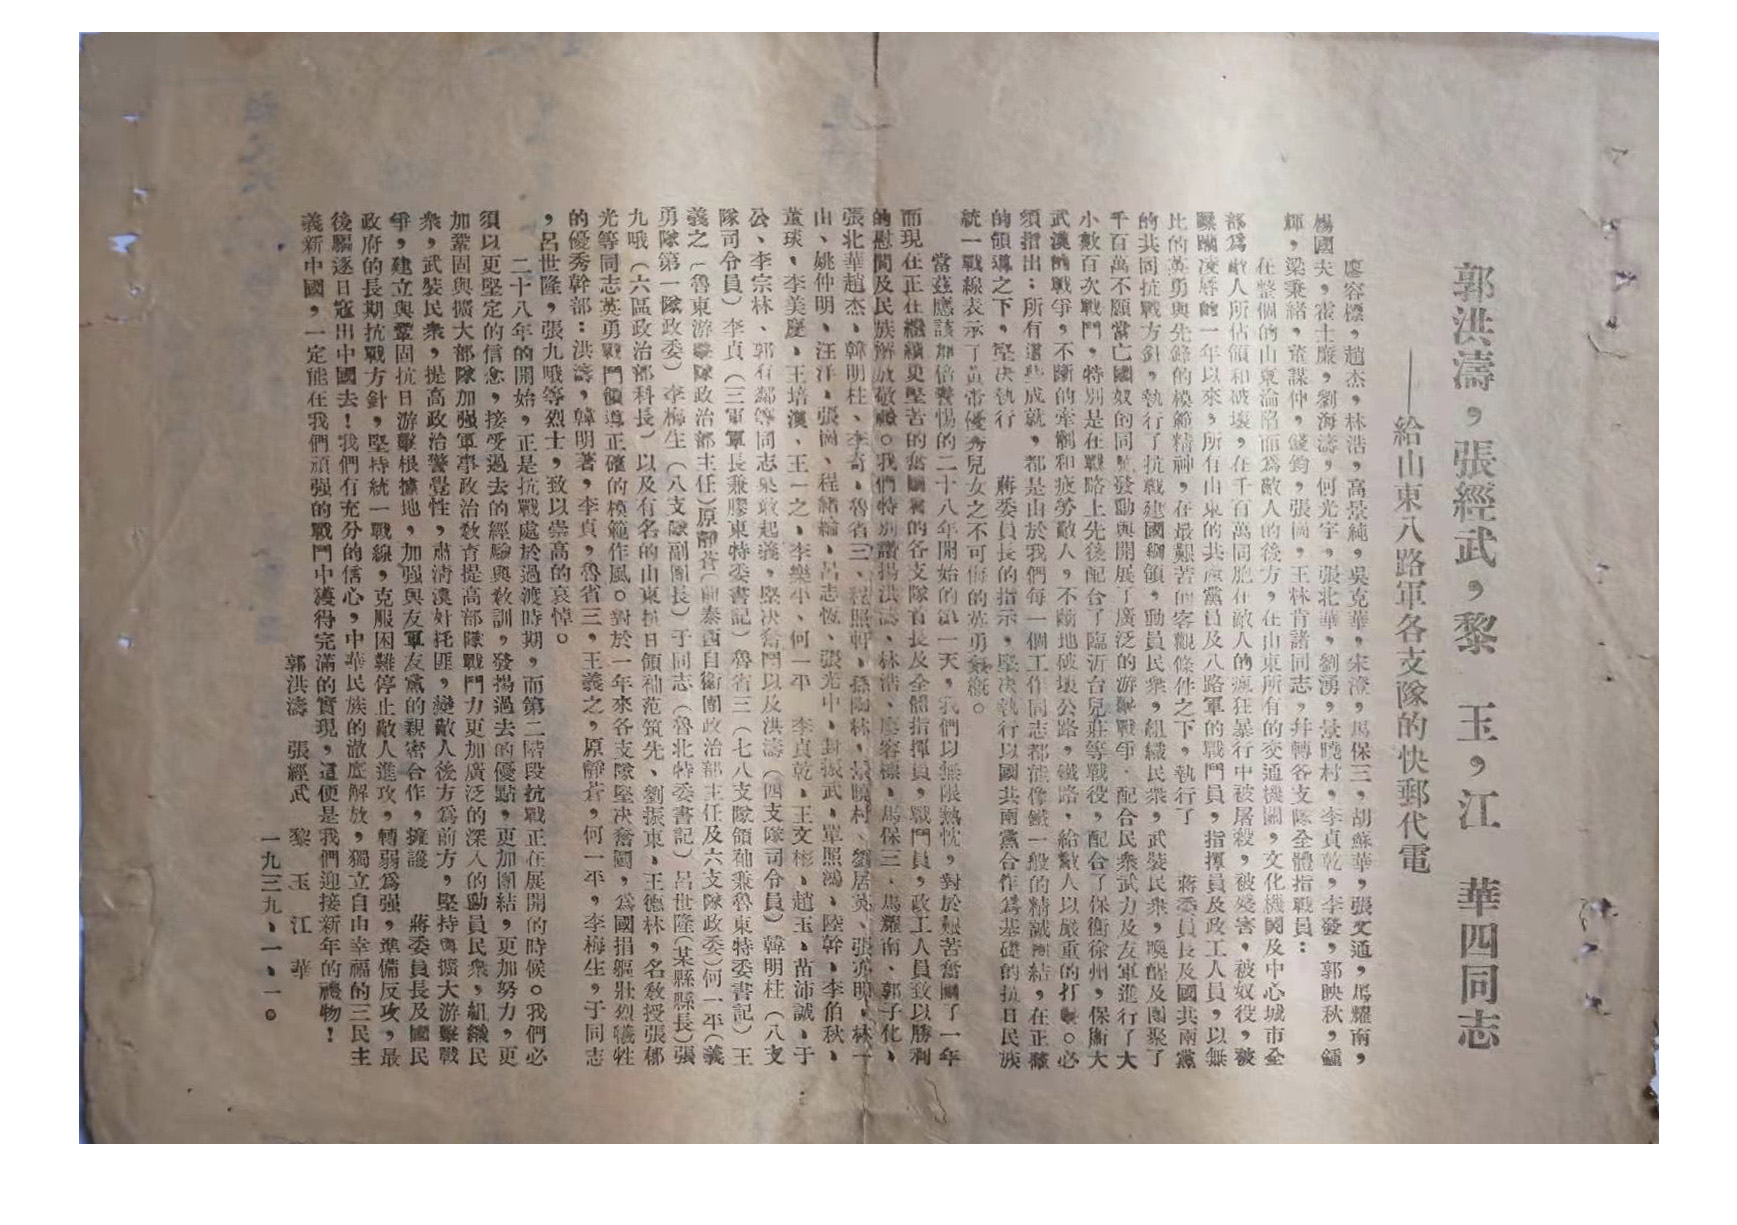 郭洪濤，張經武，黎　玉，江　華四同志
——給山東八路軍各支隊的快郵代電
廖容標，趙杰，林浩，高景純，吳克華，宋澄，馬保三，胡蘇華，張文通，馬耀南，
楊國夫，霍士廉，劉海濤，何光宇，張北華，劉湧，景曉村，李貞乾，李發，郭映秋，鍾
輝，梁秉緒，董謀仲，錢鈞，張岡，王林肯諸同志，并轉各支隊全體指戰員：
在整個的山東淪陷而爲敵人的後方，在山東所有的交通機關，文化機關及中心城市全
部爲敵人所佔領和破壞，在千百萬同胞在敵人的瘋狂暴行中被屠殺，被殘害，被奴役，被
蹂躪凌辱的一年以來，所有山東的共產黨員及八路軍的戰鬥員，指揮員及政工人員，以無
比的英勇與先鋒的模範精神，在最艱苦的客觀條件之下，執行了　　蔣委員長及國共兩黨
的共同抗戰方針，執行了抗戰建國綱領，動員民衆，組織民衆，武裝民衆，喚醒及團聚了
千百萬不願當亡國奴的同胞，發動與開展了廣泛的游擊戰爭，配合民衆武力及友軍進行了大
小數百次戰鬥，特別是在戰略上先後配合了臨沂台兒莊等戰役，配合了保衛徐州，保衛大
武漢的戰爭，不斷的牽制和疲勞敵人，不斷地破壞公路，鐵路，給敵人以嚴重的打擊。必
須指出：所有這些成就，都是由於我們每一個工作同志都能像鐵一般的精誠團結，在正確
的領導之下，堅決執行　　蔣委員長的指示，堅決執行以國共兩黨合作爲基礎的抗日民族
統一戰線表示了黃帝優秀兒女之不可侮的英勇氣概。
當茲應該加倍警惕的二十八年開始的第一天，我們以無限熱忱，對於艱苦奮鬥了一年
而現在正在繼續更堅苦的奮鬥着的各支隊首長及全體指揮員，戰鬥員，政工人員致以勝利
的慰問及民族解放敬禮。我們特別讚揚洪濤、林浩、廖容標、馬保三、馬耀南、郭子化、
張北華趙杰、韓明柱、李奇、魯省三、程照軒、孫陶林、景曉村、劉居英、張亦明、林一
山、姚仲明、汪洋、張岡、程緒綸、呂志恆、張光中、封振武、單照鴻、陸幹、李伯秋、
董琰、李美慶、王培漢、王一之、李樂平、何一平　李貞乾、王文彬、趙玉、苗沛誠、于
公、李宗林、郭有鄰等同志果敢起義，堅決奮鬥以及洪濤（四支隊司令員）韓明柱（八支
隊司令員）李貞（三軍軍長兼膠東特委書記）魯省三（七八支隊領袖兼魯東特委書記）王
義之（魯東游擊隊政治部主任）原靜蒼（前泰西自衛團政治部主任及六支隊政委）何一平（義
勇隊第一隊政委）李梅生（八支隊副團長）于同志（魯北特委書記）呂世隆（某縣縣長）張
九哦（六區政治部科長）以及有名的山東抗日領袖范筑先、劉振東、王德林，名教授張郁
光等同志英勇戰鬥領導正確的模範作風。對於一年來各支隊堅決奮鬥，爲國捐軀壯烈犧牲
的優秀幹部：洪濤，韓明著，李貞，魯省三，王義之，原靜蒼，何一平，李梅生，于同志
，呂世隆，張九哦等烈士，致以崇高的哀悼。
二十八年的開始，正是抗戰處於過渡時期，而第二階段抗戰正在展開的時候。我們必
須以更堅定的信念，接受過去的經驗與教訓，發揚過去的優點，更加團結，更加努力，更
加鞏固與擴大部隊加强軍事政治教育提高部隊戰鬥力更加廣泛的深入的動員民衆，組織民
衆，武裝民衆，提高政治警覺性，肅清漢奸托匪，變敵人後方爲前方，堅持與擴大游擊戰
爭，建立與鞏固抗日游擊根據地，加强與友軍友黨的親密合作，擁護　　蔣委員長及國民
政府的長期抗戰方針，堅持統一戰線，克服困難停止敵人進攻，轉弱爲强，準備反攻，最
後驅逐日寇出中國去！我們有充分的信心，中華民族的澈底解放，獨立自由幸福的三民主
義新中國，一定能在我們頑强的戰鬥中獲得完滿的實現，這便是我們迎接新年的禮物！
郭洪濤　張經武　黎　玉　江　華
一九三九、一、一。